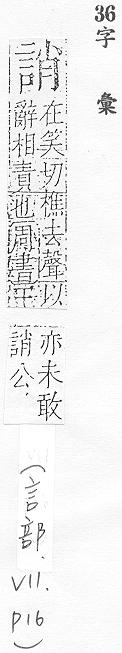 36 字彙
誚
在笑切樵去聲以
辭相責也周書王
亦未敢
誚公
(言部. VII. P16)